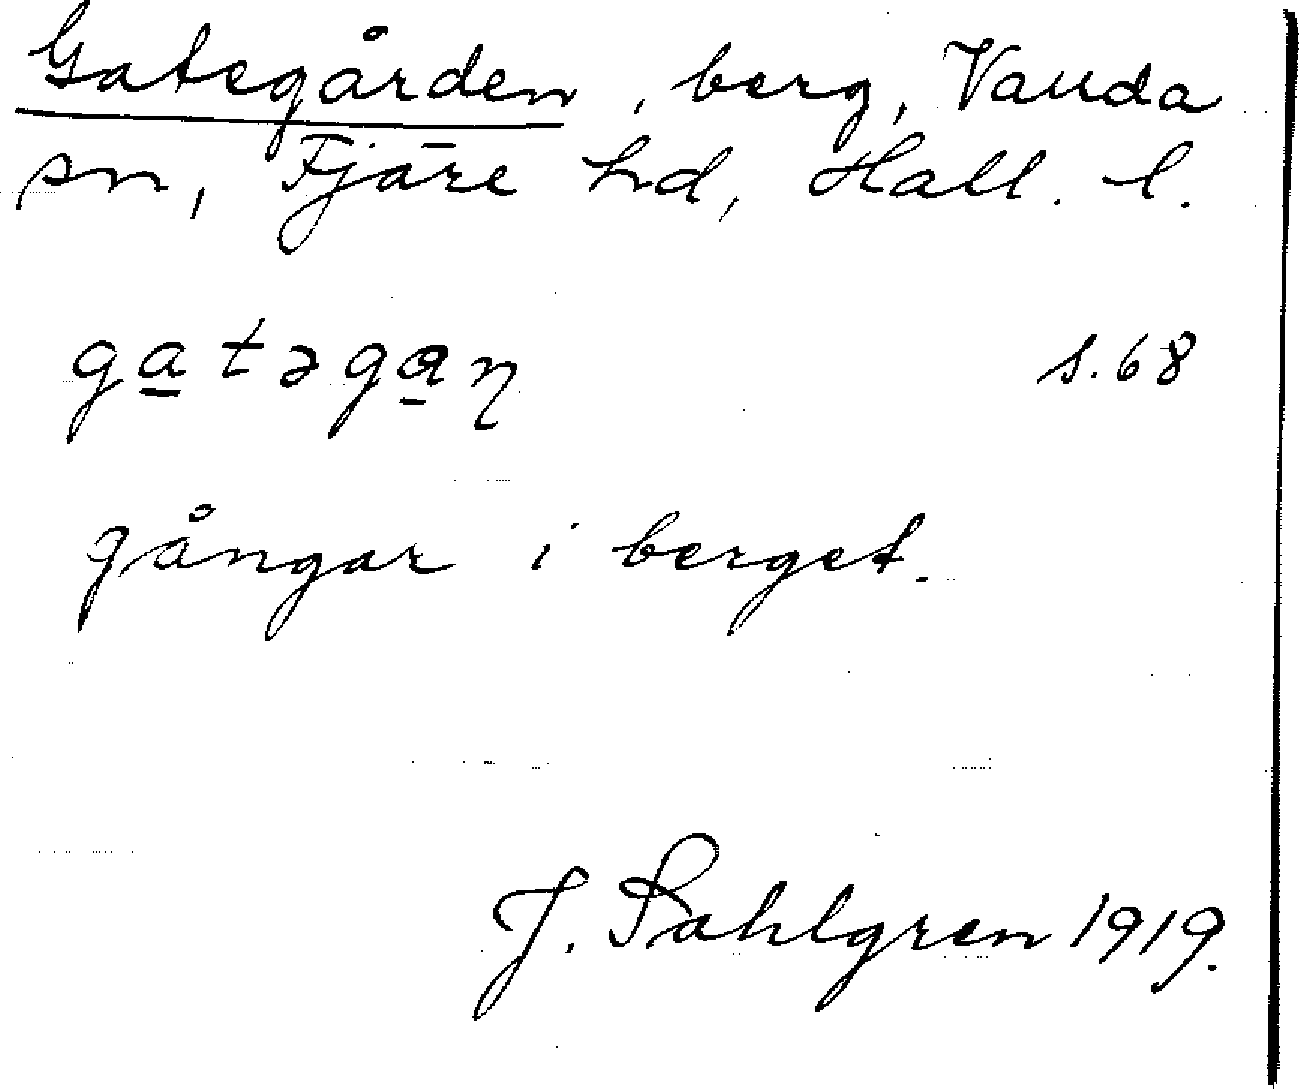 Gategården, berg, Vallda
sn, Fjäre hd, Hall. l.
gatəgaɳ s.68
gångar i berget.
J. Sahlgren 1919.